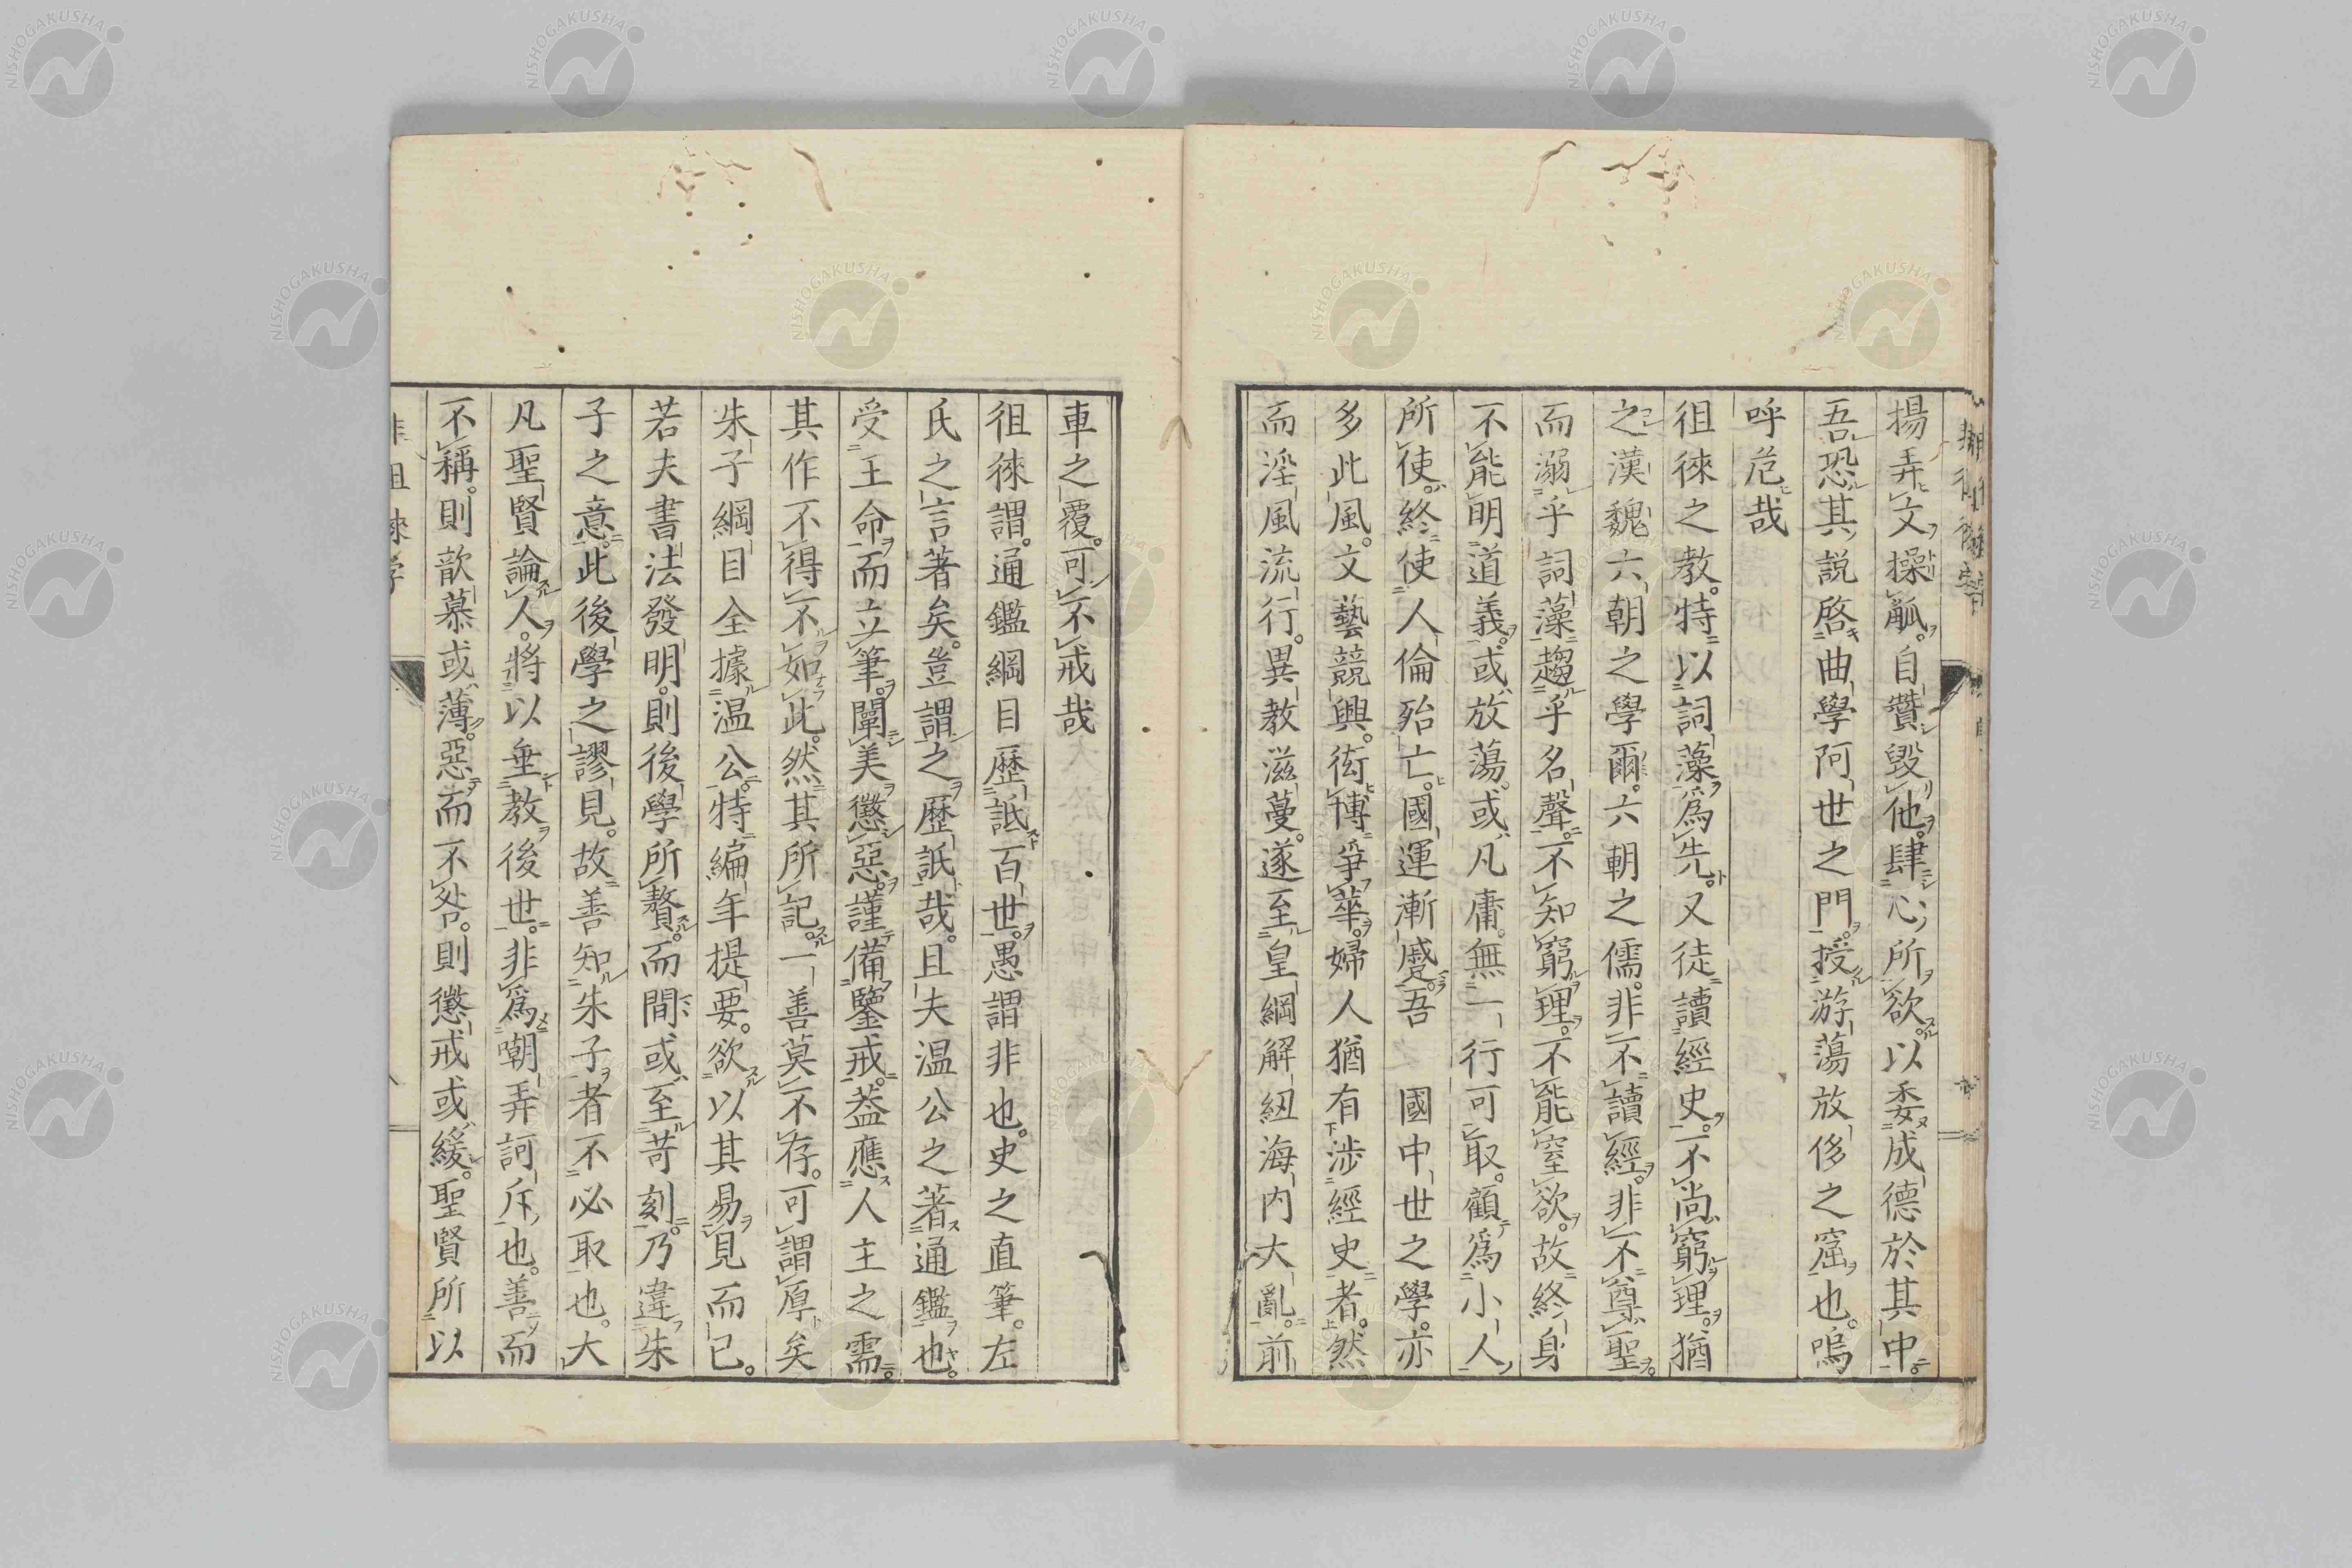 揚弄文操觚。自贊毀他。肆心所欲。以委成德於其中。
吾恐其説啓曲學阿世之門。授游蕩放侈之窟也。嗚
呼危哉
徂徠之教。特以詞藻爲先。又徒讀經史。不尚窮理。猶
之漢魏六朝之學爾。六朝之儒。非不讀經。非不尊聖。
而溺乎詞藻。趨乎名聲。不知窮理。不能窒欲。故終身
不能明道義。或放蕩。或凡庸。無一行可取。顧爲小人
所使。終使人倫殆亡。國運漸蹙。吾 國中世之學。亦
多此風。文藝競興。衒博爭華。婦人猶有涉經史者。然
而淫風流行。異教滋蔓。遂至皇綱解紐海内大亂。前
車之覆。可不戒哉
徂徠謂。通鑑綱目歷詆百世。愚謂非也。史之直筆。左
氏之言著矣。豈謂之歷詆哉。且夫温公之著通鑑也。
受王命而立筆。闡美懲惡。謹備鑒戒。葢應人主之需。
其作不得不如此。然其所記。一善莫不存。可謂厚矣
朱子綱目全據温公。特編年提要。欲以其易見而已。
若夫書法發明。則後學所贅。而間或至苛刻。乃違朱
子之意。此後學之謬見。故善知朱子者不必取也。大
凡聖賢論人。將以垂教後世。非爲嘲弄訶斥也。善而
不稱。則歆慕或薄。惡而不咎。則懲戒或緩。聖賢所以
NISHOGAKUSHA